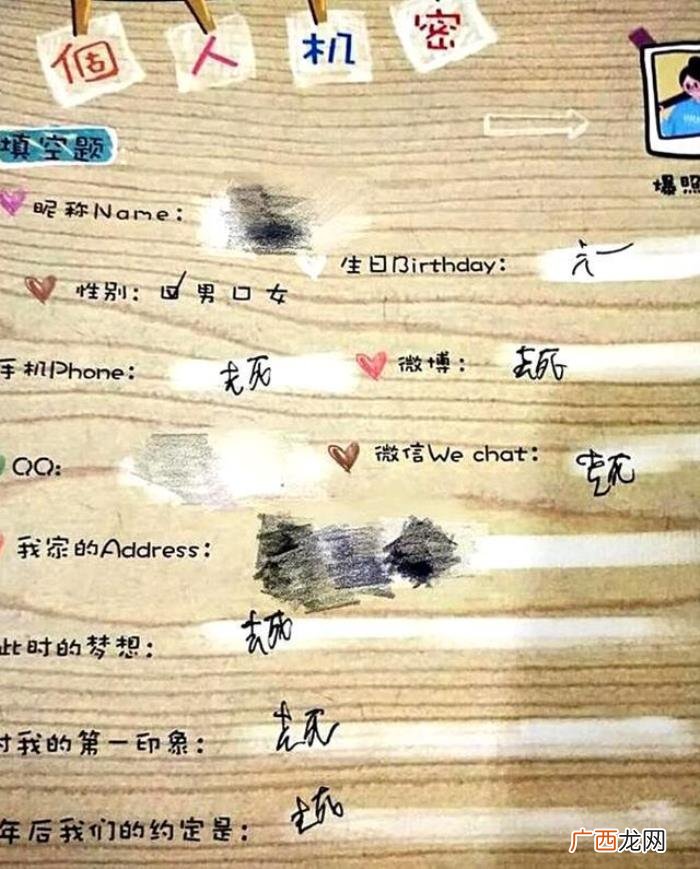 個人机密
填空题
爆照
昵称Name：
生日Birthday：
性别：☑男 口女
手机Phone：去死
微博：去死
QQ：
微信We chat：去死
我家的Address：
此时的梦想：去死
对我的第一印象：去死
年后我们的约定是：去死
广西龙网